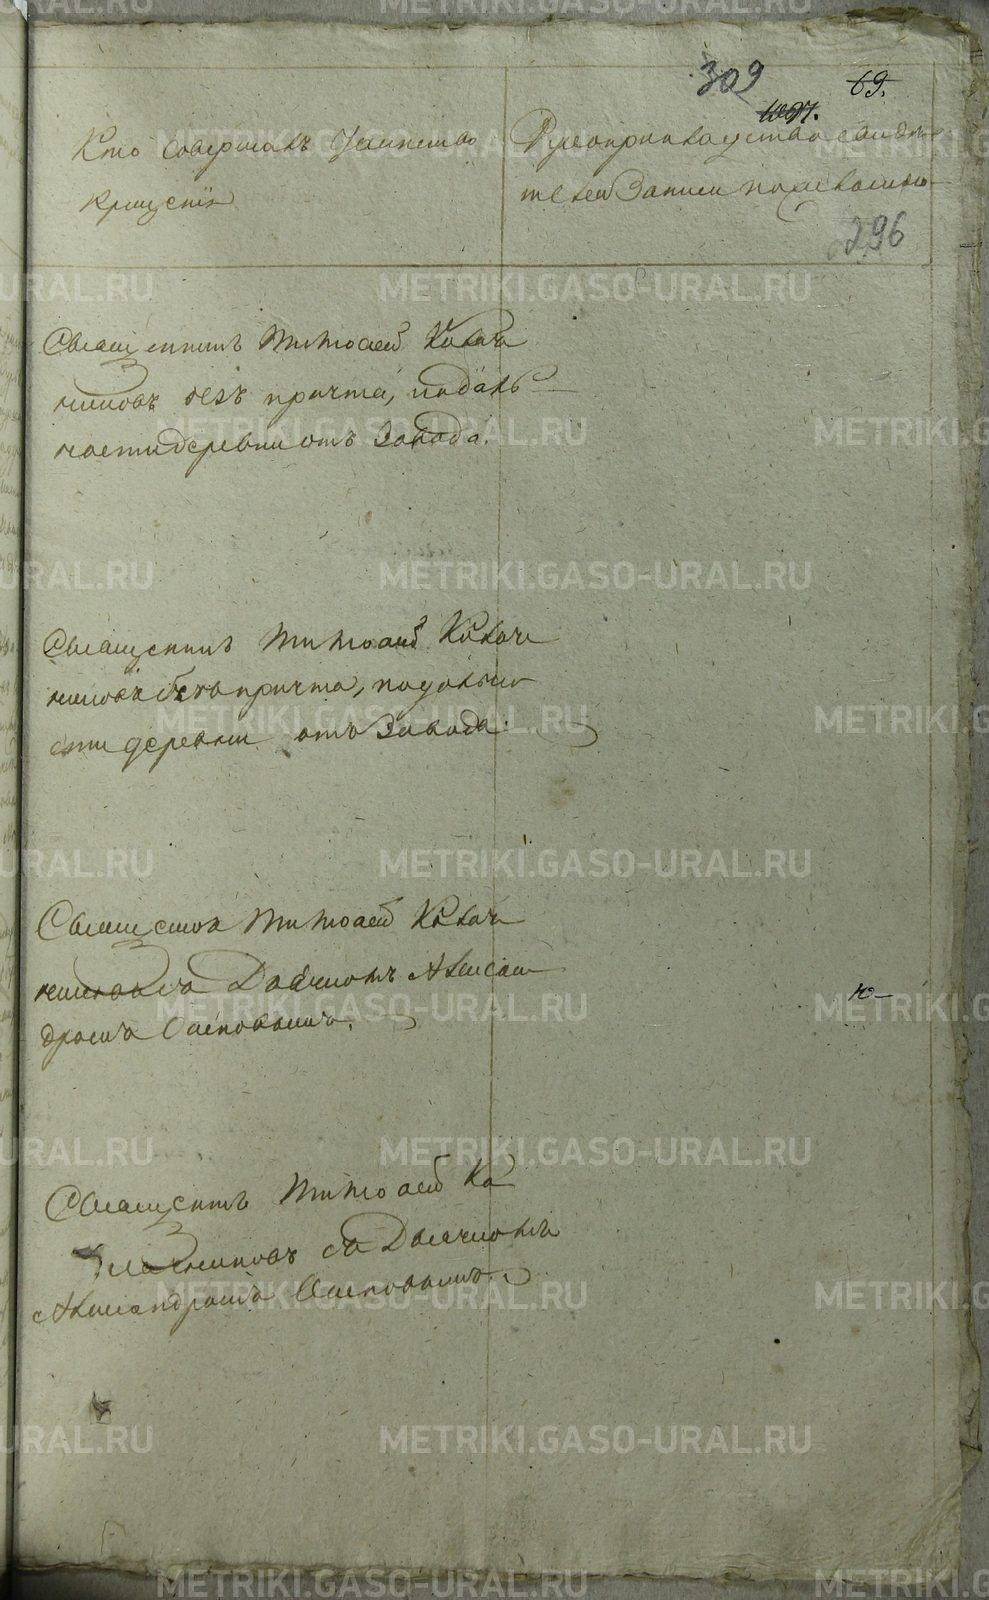 309 69.
Кто совершалъ Таинство
Рукоприкладство свидѣ
крещенія
телей записи по желанію
296
Священникъ Тимоѳей Кала
чниковъ безъ причта, подаль
ности деревни отъ Завода.
Священникъ Тимоѳей Калач
никовъ безъ причта, по дально
сти деревни отъ Завода.
Священникъ Тимоѳей Калач
никовъ съ Дьячкомъ Алексан
дромъ
ю
Священникъ Тимоѳей Ка
лачниковъ съ Дьячкомъ
Александромъ
METRIKI.GASO-URAL.RU